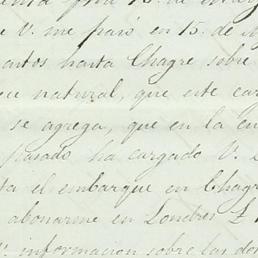 V. me pasó en 15. de
hasta Chagre sobre
natural, que este car
se agrega, que en la cu
pasado ha cargado V.
ta el embarque en Chagre
abonarme en Londres £
V. informacion sobre las do